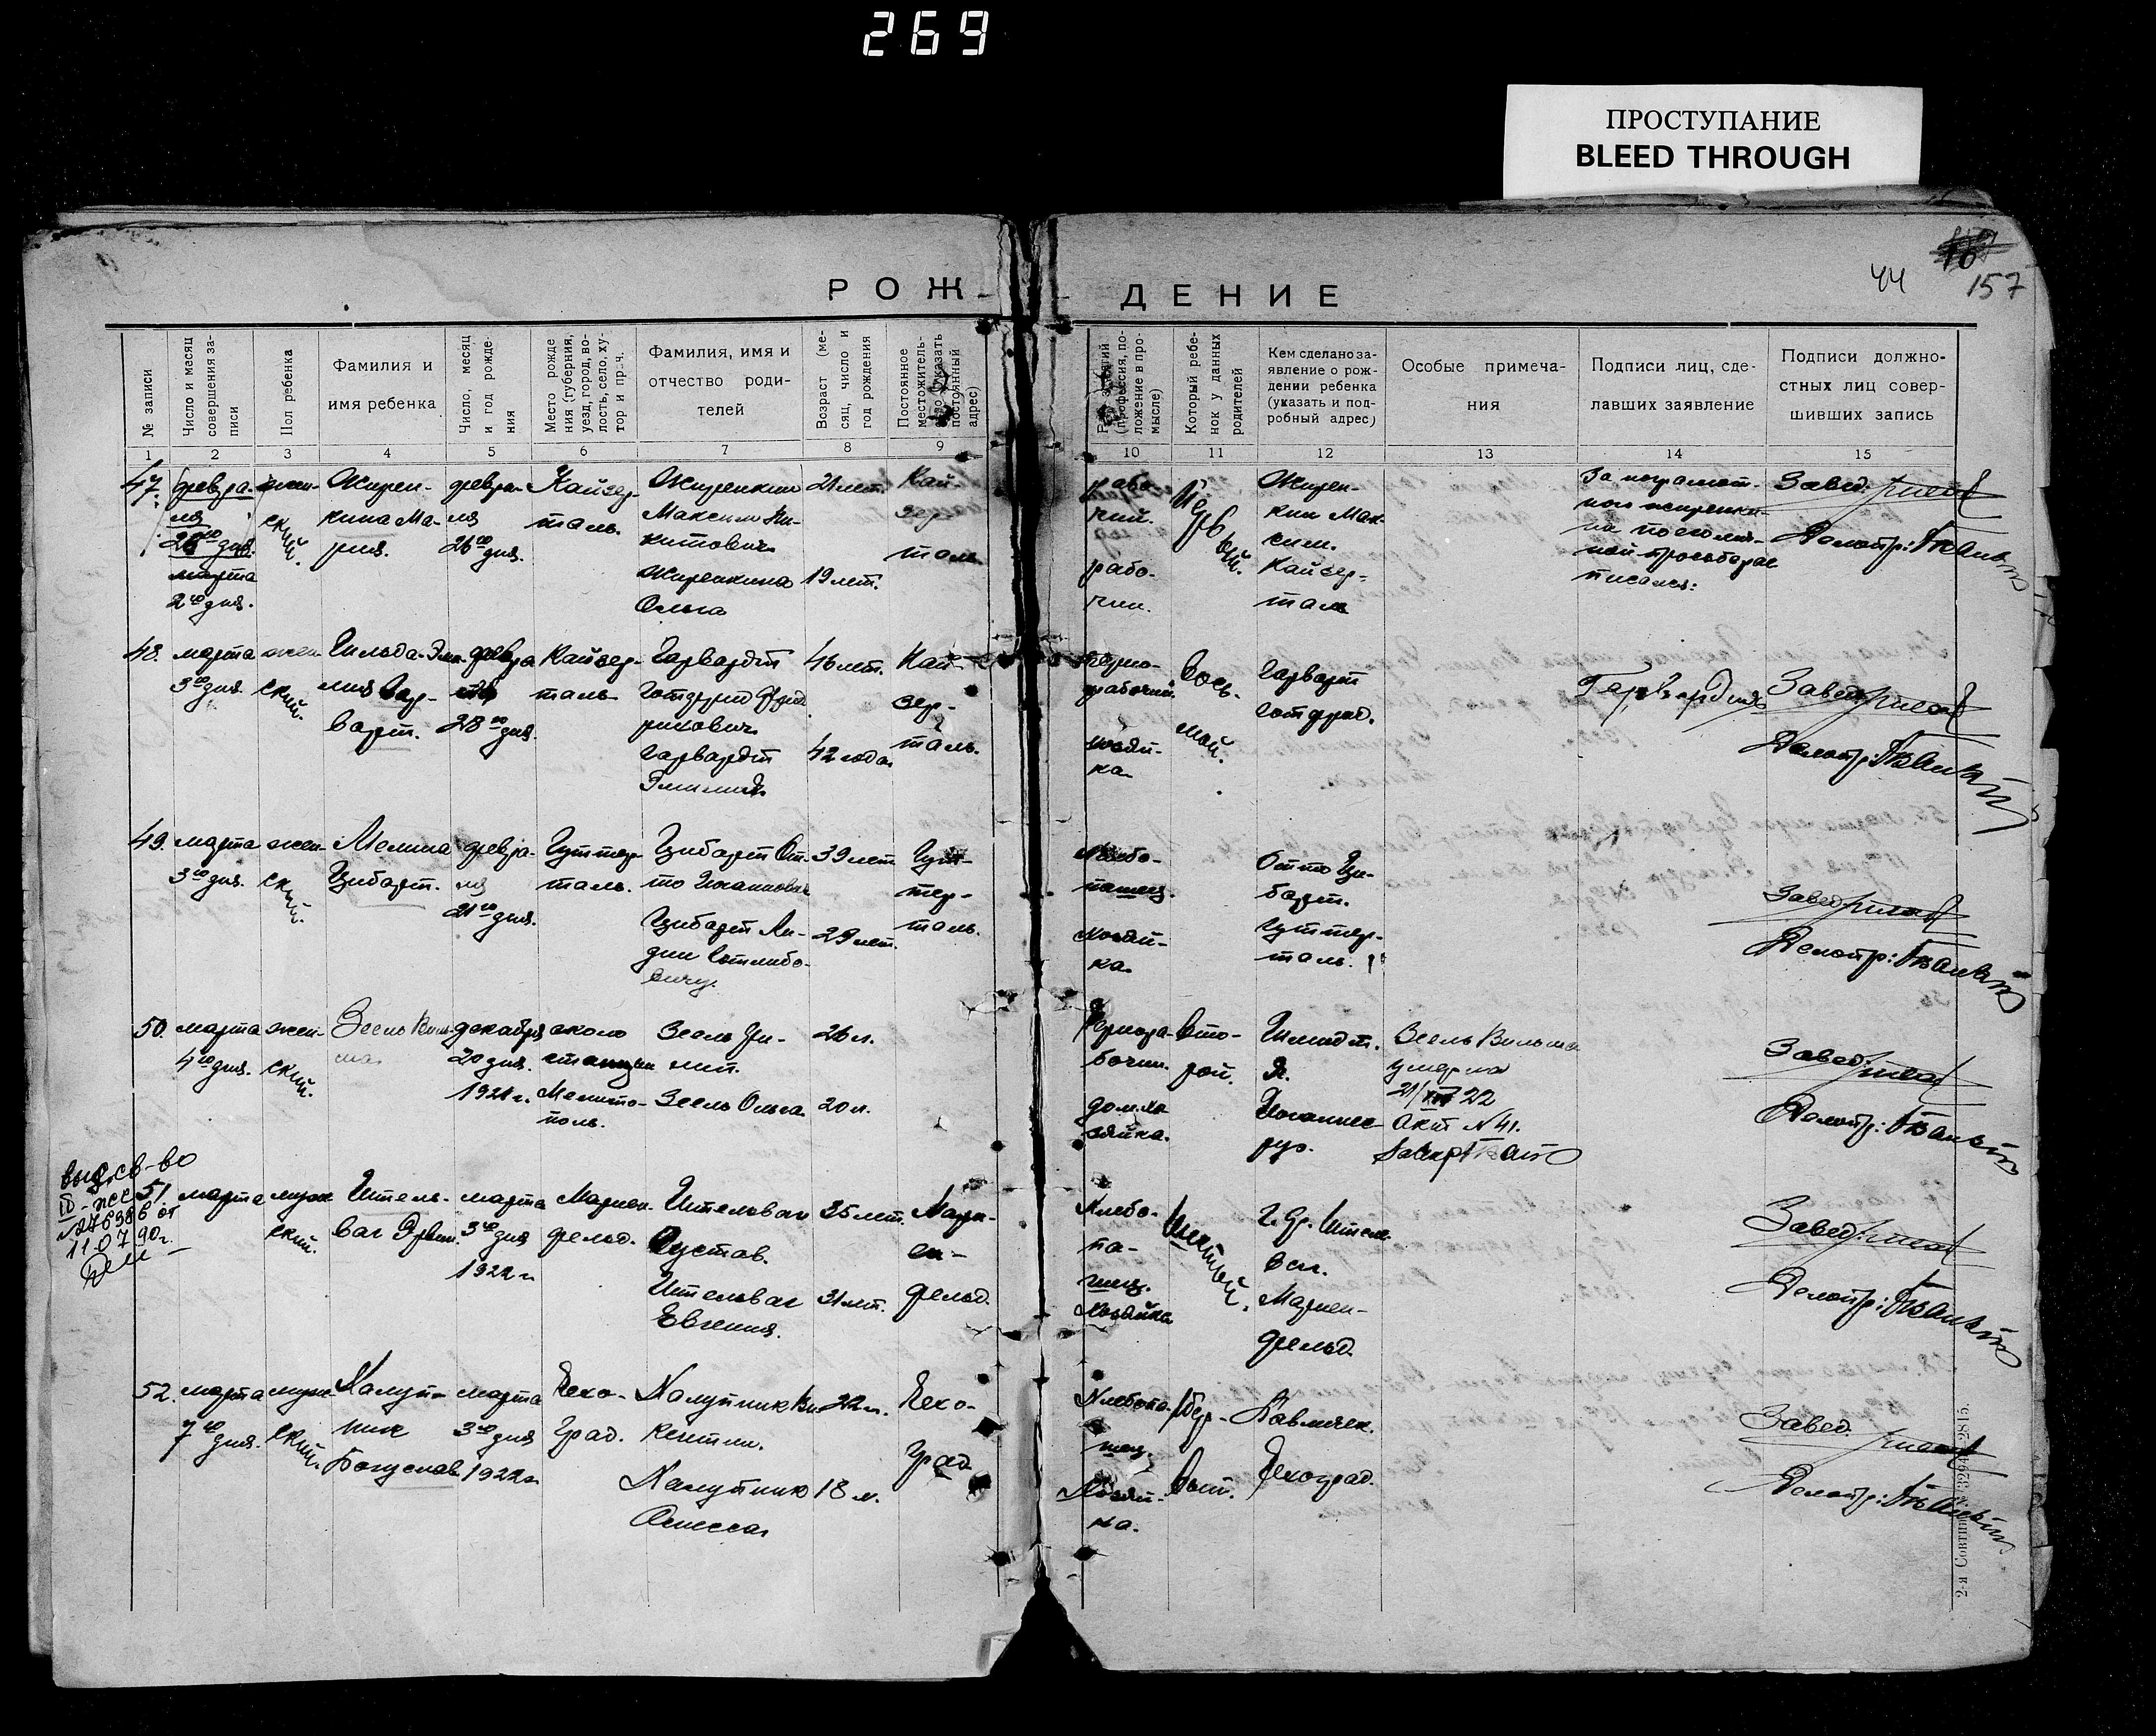 269
ПРОСТУПАНИЕ
BLEED THROUGH
44
157
РОЖ
ДЕНИЕ
№ записи
Число и месяц совершения записи
Пол ребенка
Фамилия и
имя ребенка
Число, месяц и год рождения
Место рожде
ния (губерния,
уезд, город, во-
лость, село, ху-
тор и проч.
Фамилия, имя и
отчество роди-
телей
Возраст (ме-
сяц, число и
год рождения
Постоянное
местожитель-
постоянный
адрес)
(профессия, по-
ложение в про-
мысле)
Который ребе-
нок у данных
родителей
Кем сделано за-
явление о рож-
дении ребенка
(указать и под-
робный адрес)
Особые примеча-
ния
Подписи лиц, сде-
лавших заявление
Подписи должно-
стных лиц совер-
шивших запись
1 2 3 4 5 6 7 8 9 10 11 12 13 14 15
47. февра-
ля
26го дня.
марта
2го дня.
жен-
ский.
Жирен-
кина Ма-
рия.
февра-
ля
26го дня.
Кайзер-
таль.
Жиренкин
Максим Ни-
китович
Жиренкина
Ольга
21 лет.
19 лет.
Кай-
зер-
таль
рабо-
чий.
рабо-
чий.
Первый.
Жирен-
кин Мак-
сим.
Кайзер-
таль
За неграмот-
Завед.
Делопр:
48. марта
3го дня.
жен-
ский.
Гильда-Эми-
лия Гар-
вардт.
февра
28го дня.
Кайзер-
таль
Гарвардт
Готфрид Фрид
рихович
Гарвардт
Эмилия
46 лет.
42 года
Кай-
зер-
таль.
рабочий
хозяй-
ка
Вось-
мой.
Гарвардт
Готфрид.
Завед.
Делопр:
49. марта
3го дня.
жен-
ский.
Мелита
Цибарт.
февра-
ля
21го дня.
Гуттер-
таль.
Цибарт От-
то Иоганнович
Цибарт Ли-
дия Готлибо-
39 лет
29 лет.
Гут-
тер-
таль.
Хлебо-
пашец.
хозяй-
ка
Отто Ци-
барт.
Гуттер-
таль.
Завед.
Делопр:
50. марта
4го дня.
жен-
ский.
Зеель Виль-
ма
декабря
20 дня.
1921 г.
около
станции
Мелито-
поль.
Зеель
Зеель Ольга
26 л.
20 л.
Чернора-
бочий.
дом. хо-
зяйка.
Вто-
рой.
Шмидт.
Я.
Иоганнес-
ру.
Зеель Вильма
умерла
акт №41.
Завед.
Делопр:
выд. св-во
11.07.90г.
51. марта
муж
ский.
Штель-
ваг Эрвин.
марта
3го дня
1922 г.
Мариен-
фельд.
Штельваг
Густав.
Штельваг
Евгения.
35 лет.
31 лет.
Мари-
ен-
фельд.
Хлебо-
па-
шец.
Хозяйка
Шестый.
Штель-
ваг.
Мариен-
фельд.
Завед.
Делопр:
52. марта
7го дня.
муж-
ский.
Халуп-
ник
Богуслав
марта
3го дня
1922 г.
Чехо-
град.
Халупник Ви-
кентий.
Халупник
22 л.
18 л.
Чехо-
град
Хлебопа-
шец.
Хозяй-
ка.
Пер-
вый.
Павличек.
Чехоград.
Завед.
Делопр: